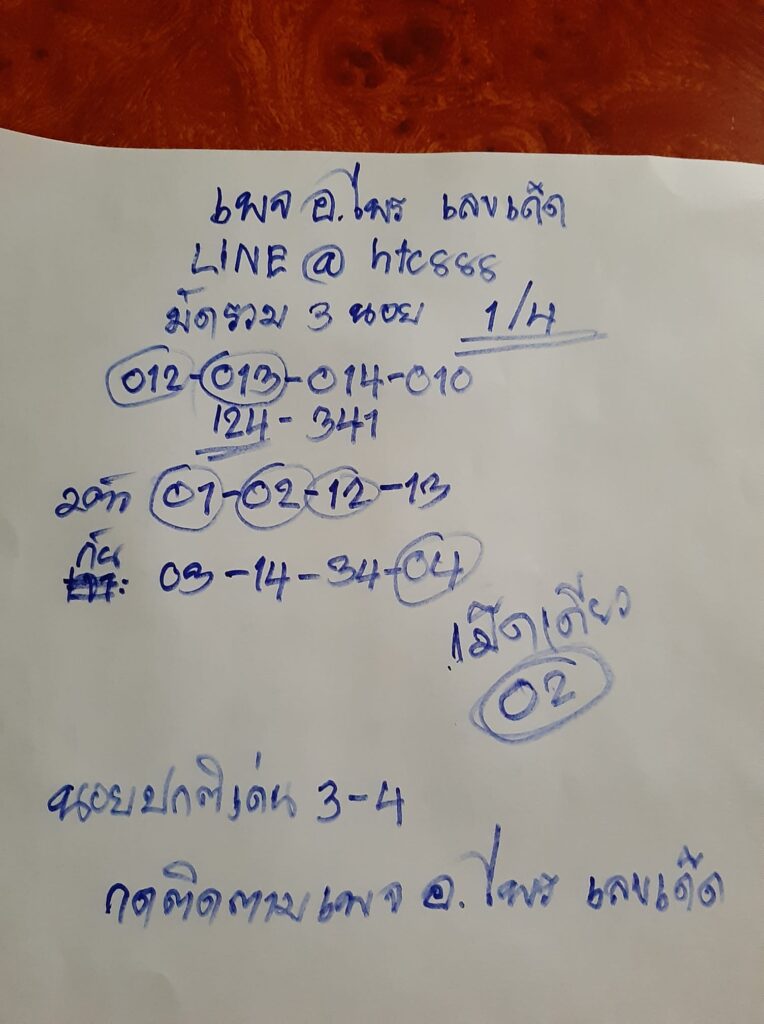 เพจ อ.ไพร เลขเด็ด
LINE @ htc888
มัดรวม 3 นอย 1/4
012-013-014-010
124-341
2ตัว 01-02-12-13
กัน : 03-14-34-04
เม็ดเดียว
02
นอยปกติเด่น 3-4
กดติดตามเพจ อ.ไพร เลขเด็ด